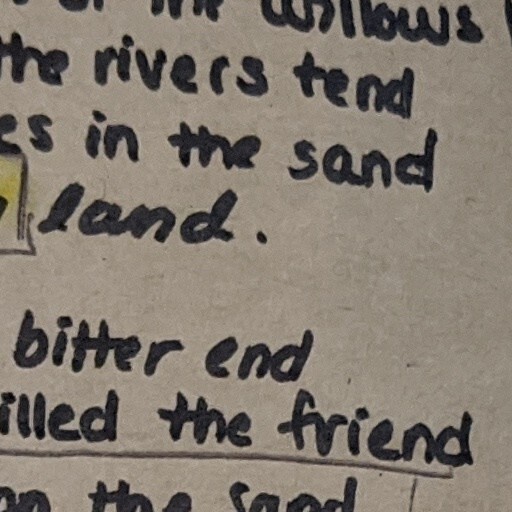 the willows
the rivers tend
es in the sand
land.
bitter end
illed the friend
on the sand